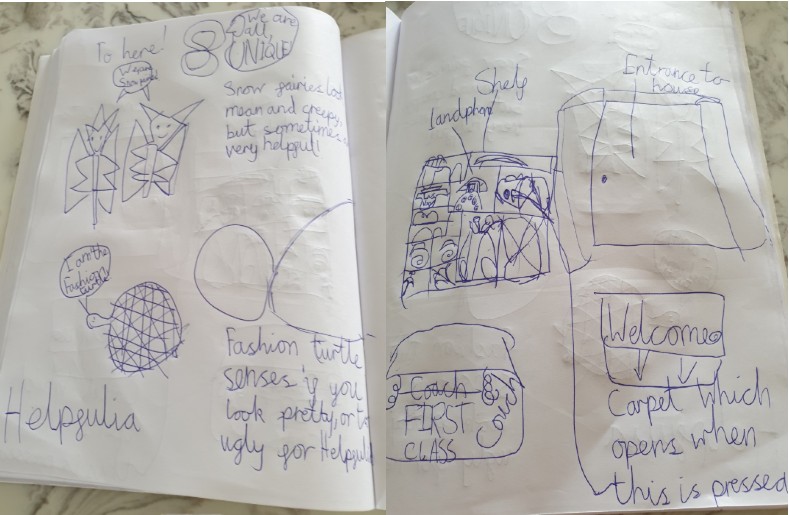 To here!
We are
all
UNIQUE
We are
Snow
Snow fairies look
mean and creepy,
but sometimes
very helpful!
I am the
Fashion
turtle
Fashion turtle
senses if you
look pretty, or to
ugly for Helpfuli
Helpfulia
Shelf
landphone
Entrance to
house
Welcome
Carpet which
opens when
this is pressed
Coach
FIRST
CLASS
Couch